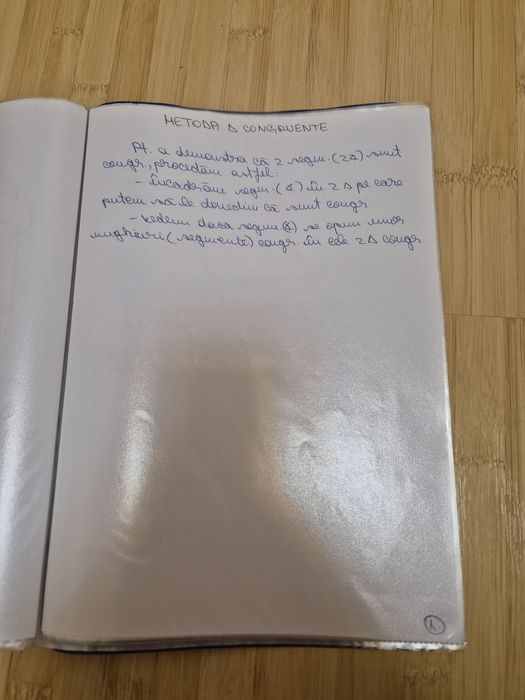 METODA Δ CONGRUENTE
Pt. a demonstra că 2 segm. (2∢) sunt
congr., procedăm astfel:
- Încadrăm segm. (∢) în 2 Δ pe care
putem să le dovedim că sunt congr.
- vedem daca segm (∢) se opun unor
unghiuri (segmente) congr. în cele 2 Δ congr.
1.